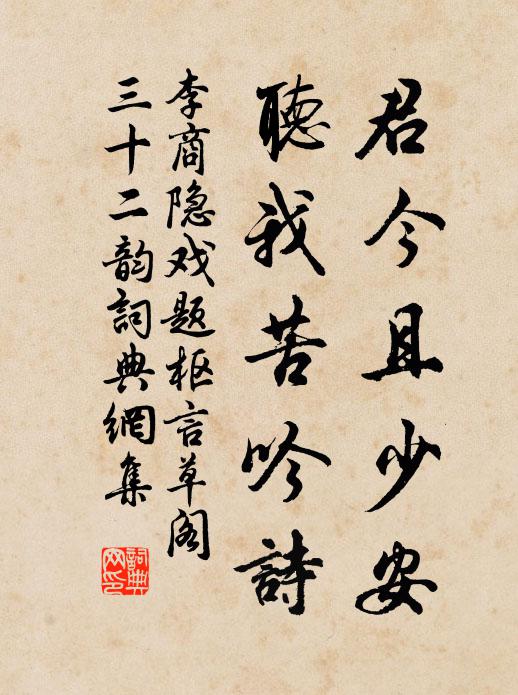 君今且少安
聽我苦吟詩
李商隐戏题枢言草阁
三十二韵詞典網集
詞典网印